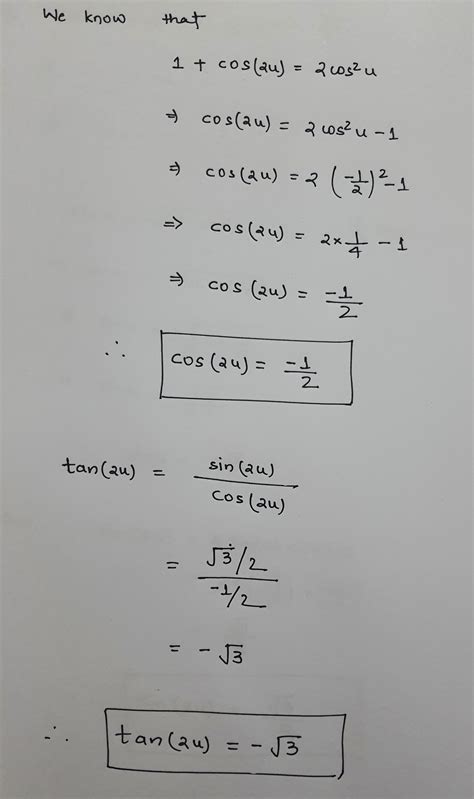 We know that
1 + cos(2u) = 2cos²u
⇒ cos(2u) = 2cos²u - 1
⇒ cos(2u) = 2 (-1/2)² - 1
⇒ cos(2u) = 2 × 1/4 - 1
⇒ cos(2u) = -1/2
∴ cos(2u) = -1/2
tan(2u) = sin(2u) / cos(2u)
= √3/2 / -1/2
= - √3
∴ tan(2u) = - √3